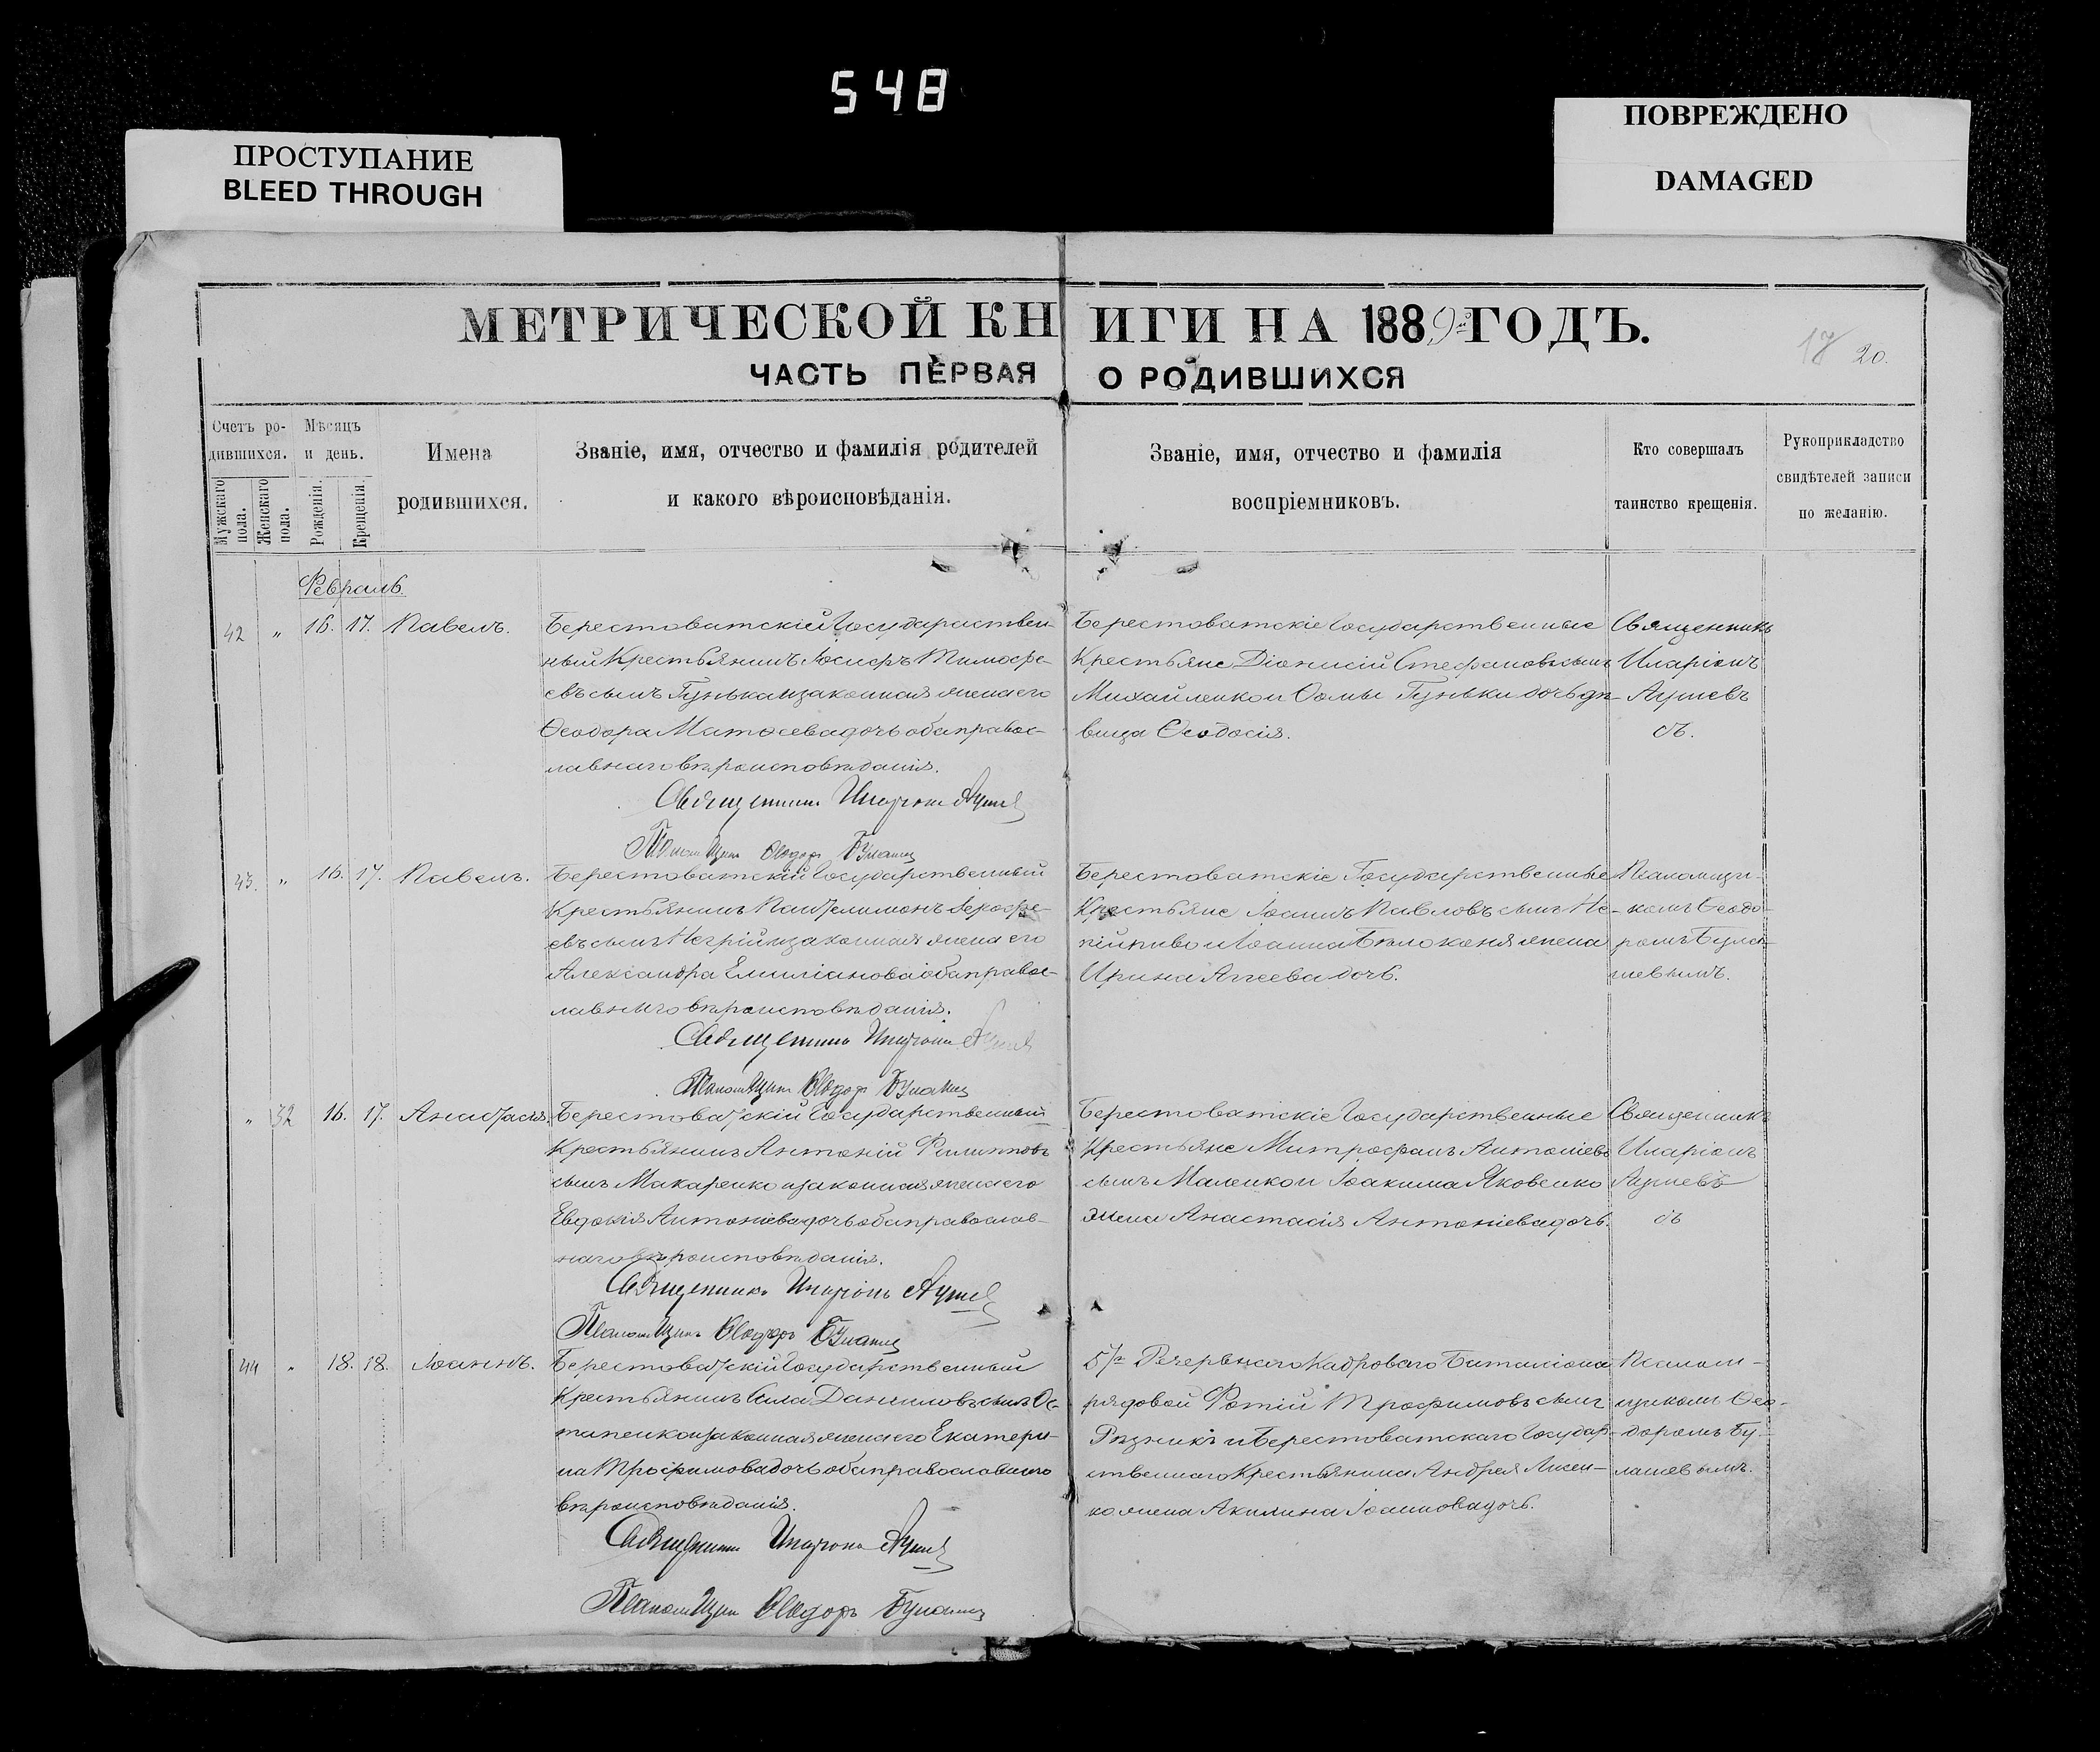 548
ПРОСТУПАНИЕ
BLEED THROUGH
ПОВРЕЖДЕНО
DAMAGED
МЕТРИЧЕСКОЙ КНИГИ НА 1889й ГОДЪ.
20.
ЧАСТЬ ПЕРВАЯ О РОДИВШИХСЯ
Счетъ ро-
дившихся.
Мужскаго пола.
Женскаго пола.
Мѣсяцъ
и день.
Рожденія.
Крещенія.
Имена
родившихся.
Званіе, имя, отчество и фамилія родителей
и какого вѣроисповѣданія.
Званіе, имя, отчество и фамилія
воспріемниковъ.
Кто совершалъ
таинство крещенія.
Рукоприкладство
свидѣтелей записи
по желанію.
Февраль
42 " 16. 17. Павелъ.
Берестоватскій Государствен-
ный Крестьянинъ Іосифъ Тимофе-
евъ сынъ Гунька и законная жена его
Ѳеодора Матѳеева дочь оба правос-
лавнаго вѣроисповѣданія.
Священникъ Иларіонъ
Псаломщикъ Ѳеодоръ
Берестоватскіе Государственные
Крестьяне Діонисій Стефановъ сынъ
Михайленко и Ѳомы Гуньки дочь дѣ-
вица Ѳеодосія.
Священникъ
Иларіонъ
43. " 16. 17. Павелъ.
Берестоватскій Государственный
Крестьянинъ Пантелимонъ
евъ сынъ и законная жена его
Александра Емиліанова оба правос-
лавнаго вѣроисповѣданія.
Священникъ Иларіонъ
Псаломщикъ Ѳеодоръ
Берестоватскіе Государственные
Крестьяне Іоаннъ Павловъ сынъ Не-
пійпиво и Іоанна Бѣлоконя жена
Ирина Агеева дочь.
Псаломщи-
комъ Ѳеодо-
ромъ Була-
шевымъ.
" 32 16. 17. Анастасія.
Берестоватскій Государственный
Крестьянинъ Антоній Филипповъ
сынъ Макаренко и законная жена его
Евдокія Антоніева дочь оба православ-
наго вѣроисповѣданія.
Священникъ Иларіонъ
Псаломщикъ Ѳеодоръ
Берестоватскіе Государственные
Крестьяне Митрофанъ Антоніевъ
сынъ Маленко и Іоакима Яковенко
жена Анастасія Антоніева дочь.
Священникъ
Иларіонъ
44 " 18. 18. Іоаннъ.
Берестоватскій Государственный
Крестьянинъ Сила Даниловъ сынъ Ос-
тапенко и законная жена его Екатери-
на Трофимова дочь оба православнаго
вѣроисповѣданія.
Священникъ Иларіонъ
Псаломщикъ Ѳеодоръ
Резервнаго Кадроваго Баталіона
рядовой Фотій Трофимовъ сынъ
Рѣзникъ и Берестоватскаго Государ-
ственнаго Крестьянина Андрея Лисен-
ко жена Акилина Іоаннова дочь.
Псалом-
щикомъ Ѳео-
доромъ Бу-
лашевымъ.